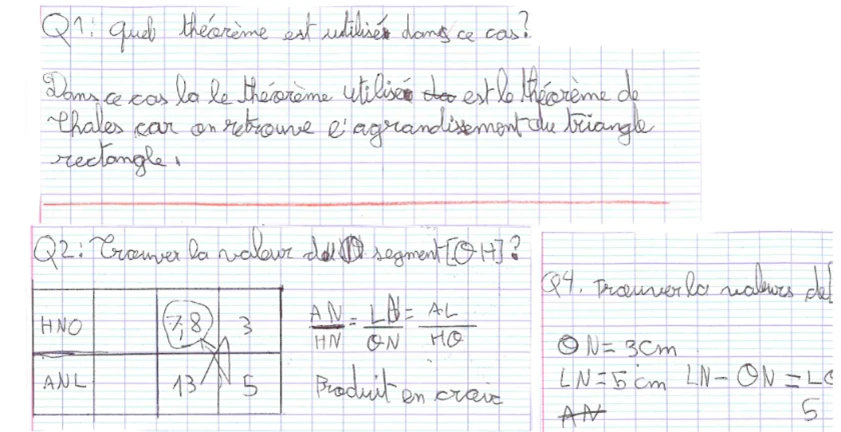 Q1: Quel théorème est utilisé dans ce cas?
Dans ce cas la le théorème utilisé est le théorème de
thales car on retrouve l'agrandissement du triangle
rectangle.
Q2: Trouver la valeur du segment [OH]?
HNO 7,8 3
ANL 13 5
AN/HN = LN/ON = AL/HO
Produit en croix
Q4. Trouver la valeurs de
ON = 3cm
LN = 5 cm LN - ON = LO
AN 5